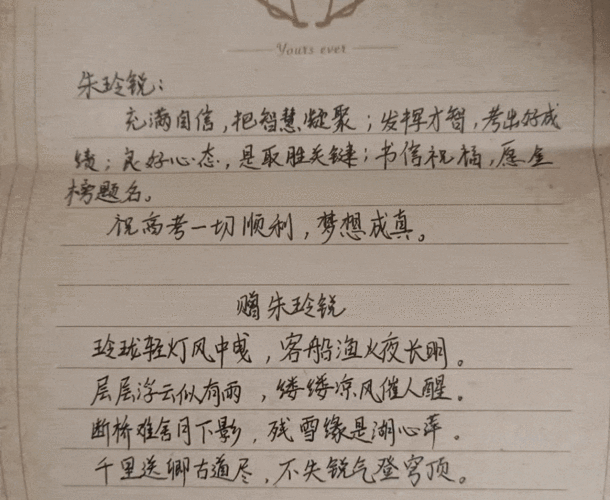 Yours ever
朱玲锐：
充满自信，把智慧凝聚；发挥才智，考出好成
绩；良好心态，是取胜关键；书信祝福，愿金
榜题名。
祝高考一切顺利，梦想成真。
赠朱玲锐
玲珑轻灯风中曳，客船渔火夜长明。
层层浮云似有雨，缕缕凉风催人醒。
断桥难舍月下影，残雪缘是湖心萍。
千里送卿古道尽，不失锐气登穹顶。